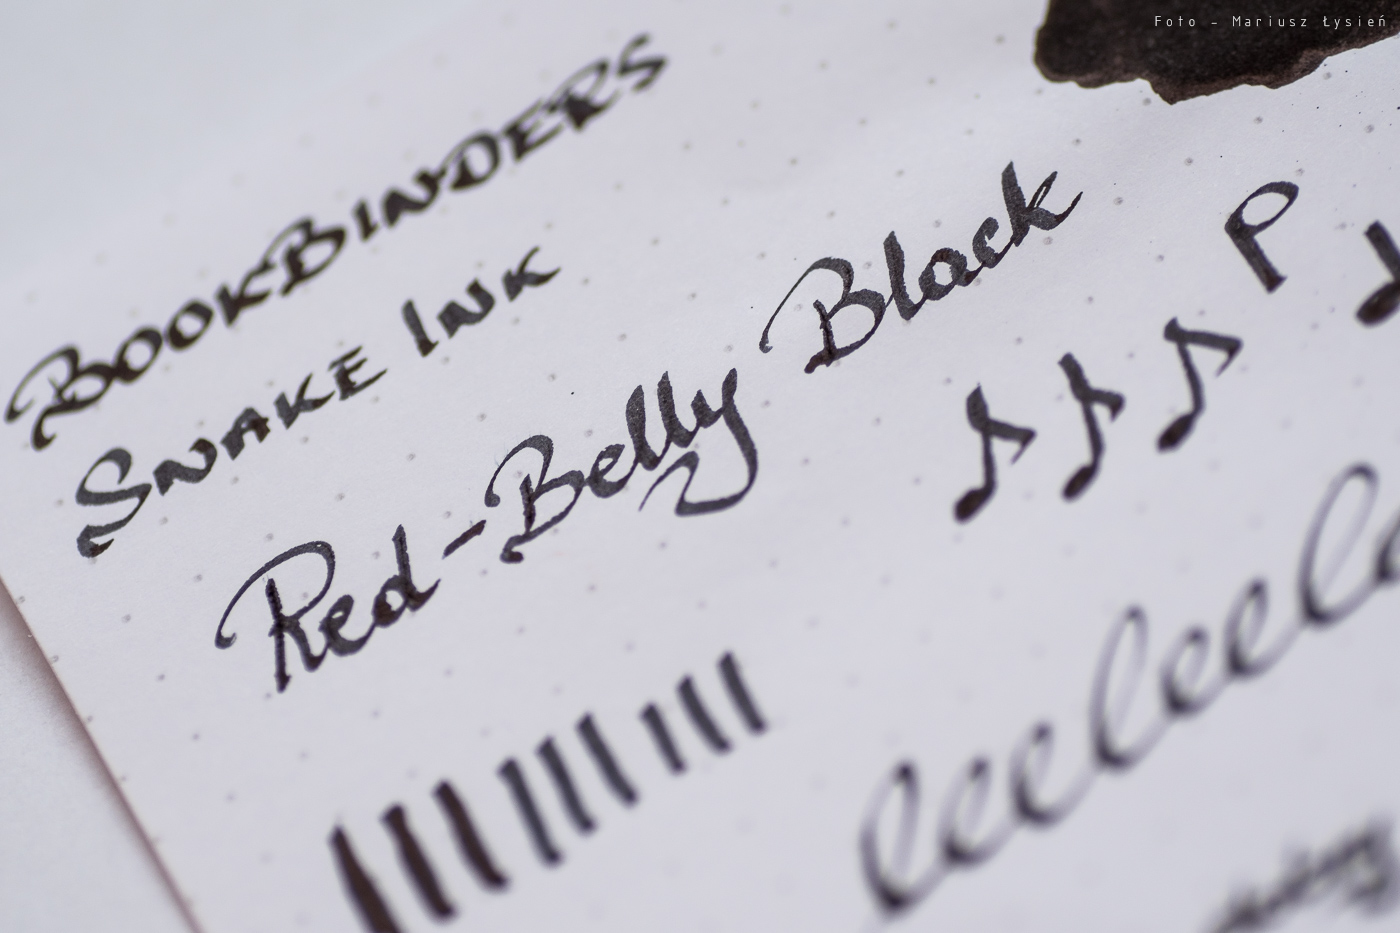 Foto - Mariusz Łysień
BOOKBINDERS
SNAKE INK
Red-Belly Black
P
leeleele